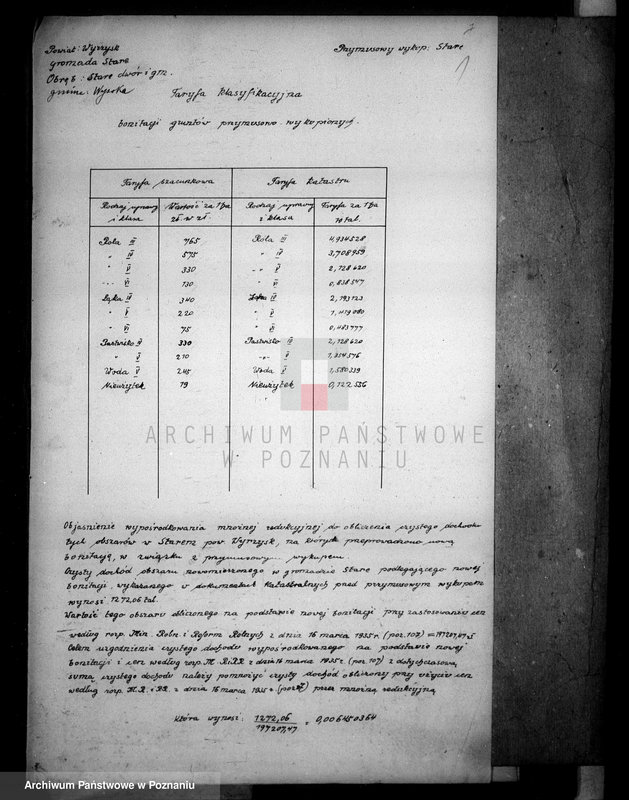 Powiat: Wyrzysk
Przymusowy wykup: Stare
gromada Stare
Obręb: Stare dwór i gm.
gmina: Wysoka
Taryfa klasyfikacyjna
bonitacji gruntów przymusowo wykupionych.
Taryfa szacunkowa Taryfa katastru
Rodzaj uprawy i klasa Wartość za 1 ha zł w zł. Rodzaj uprawy i klasa Taryfa za 1 ha w tal.
Rola III 765 Rola III 4,934528
" IV 575 " IV 3,708959
" V 330 " V 2,128620
" VI 130 " VI 0,838547
Łąka IV 340 Łąka IV 2,193123
" V 220 " V 1,419080
" VI 75 " VI 0,483777
Pastwisko IV 330 Pastwisko IV 2,128620
" V 210 " V 1,354576
Woda V 245 Woda V 1,580339
Nieużytek 19 Nieużytek 0,122556
ARCHIWUM PAŃSTWOWE
W POZNANIU
Objaśnienie wypośrodkowania mnożnej redukcyjnej do obliczenia czystego dochodu
tych obszarów w Starem pow. Wyrzysk, na których przeprowadzono nową
bonitację, w związku z przymusowym wykupem.
Czysty dochód obszaru nowomierzonego w gromadzie Stare podlegającego nowej
bonitacji wykazanego w dokumentach katastralnych przed przymusowym wykupem
wynosi 1272,06 tal.
Wartość tego obszaru obliczonego na podstawie nowej bonitacji przy zastosowaniu cen
według rozp. Min. Roln. i Reform Rolnych z dnia 16 marca 1935 r. (poz. 107) = 197207,47 zł
Celem uzgodnienia czystego dochodu wypośrodkowanego na podstawie nowej
bonitacji i cen według rozp. M. R. i R.R. z dnia 16 marca 1935 r. (poz. 107) z dotychczasową
sumą czystego dochodu należy pomnożyć czysty dochód obliczony przy użyciu cen
według rozp. M. R. i R.R. z dnia 16 marca 1935 r. (poz. 107) przez mnożną redukcyjną
która wynosi: 1272,06 / 197207,47 = 0,006450364
Archiwum Państwowe w Poznaniu